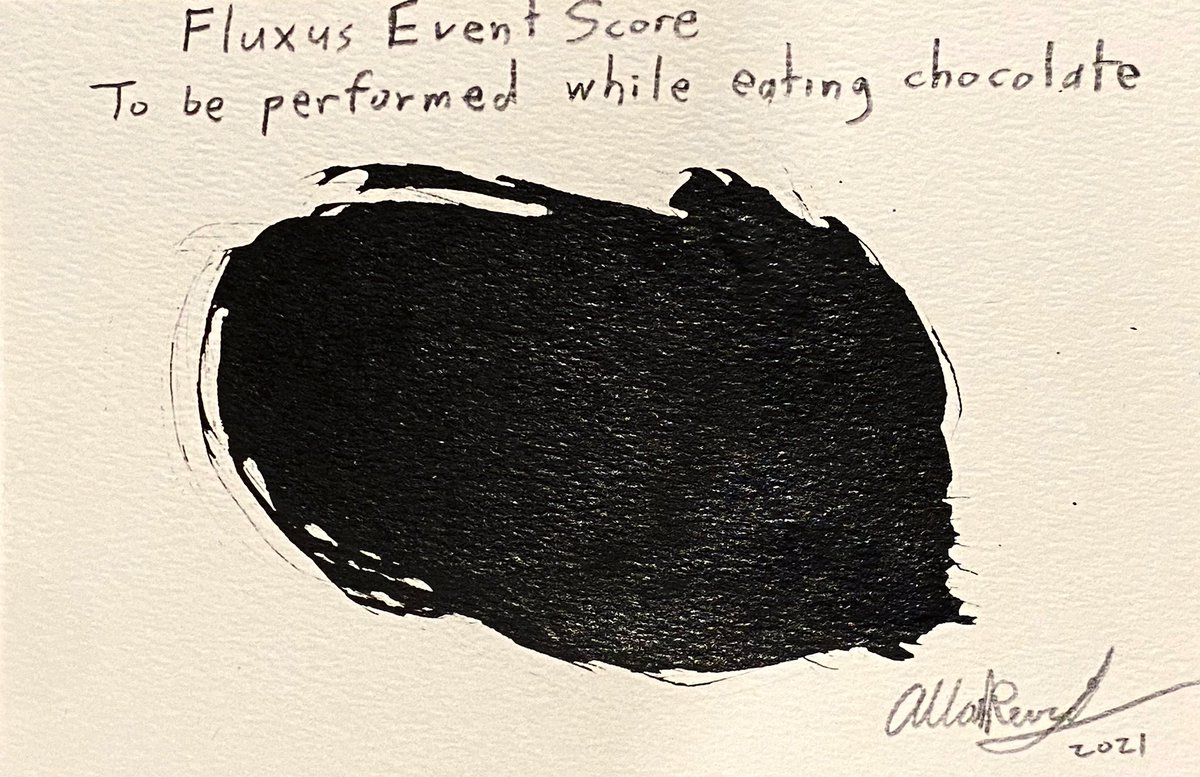 Fluxus Event Score
To be performed while eating chocolate
Allan Revich
2021